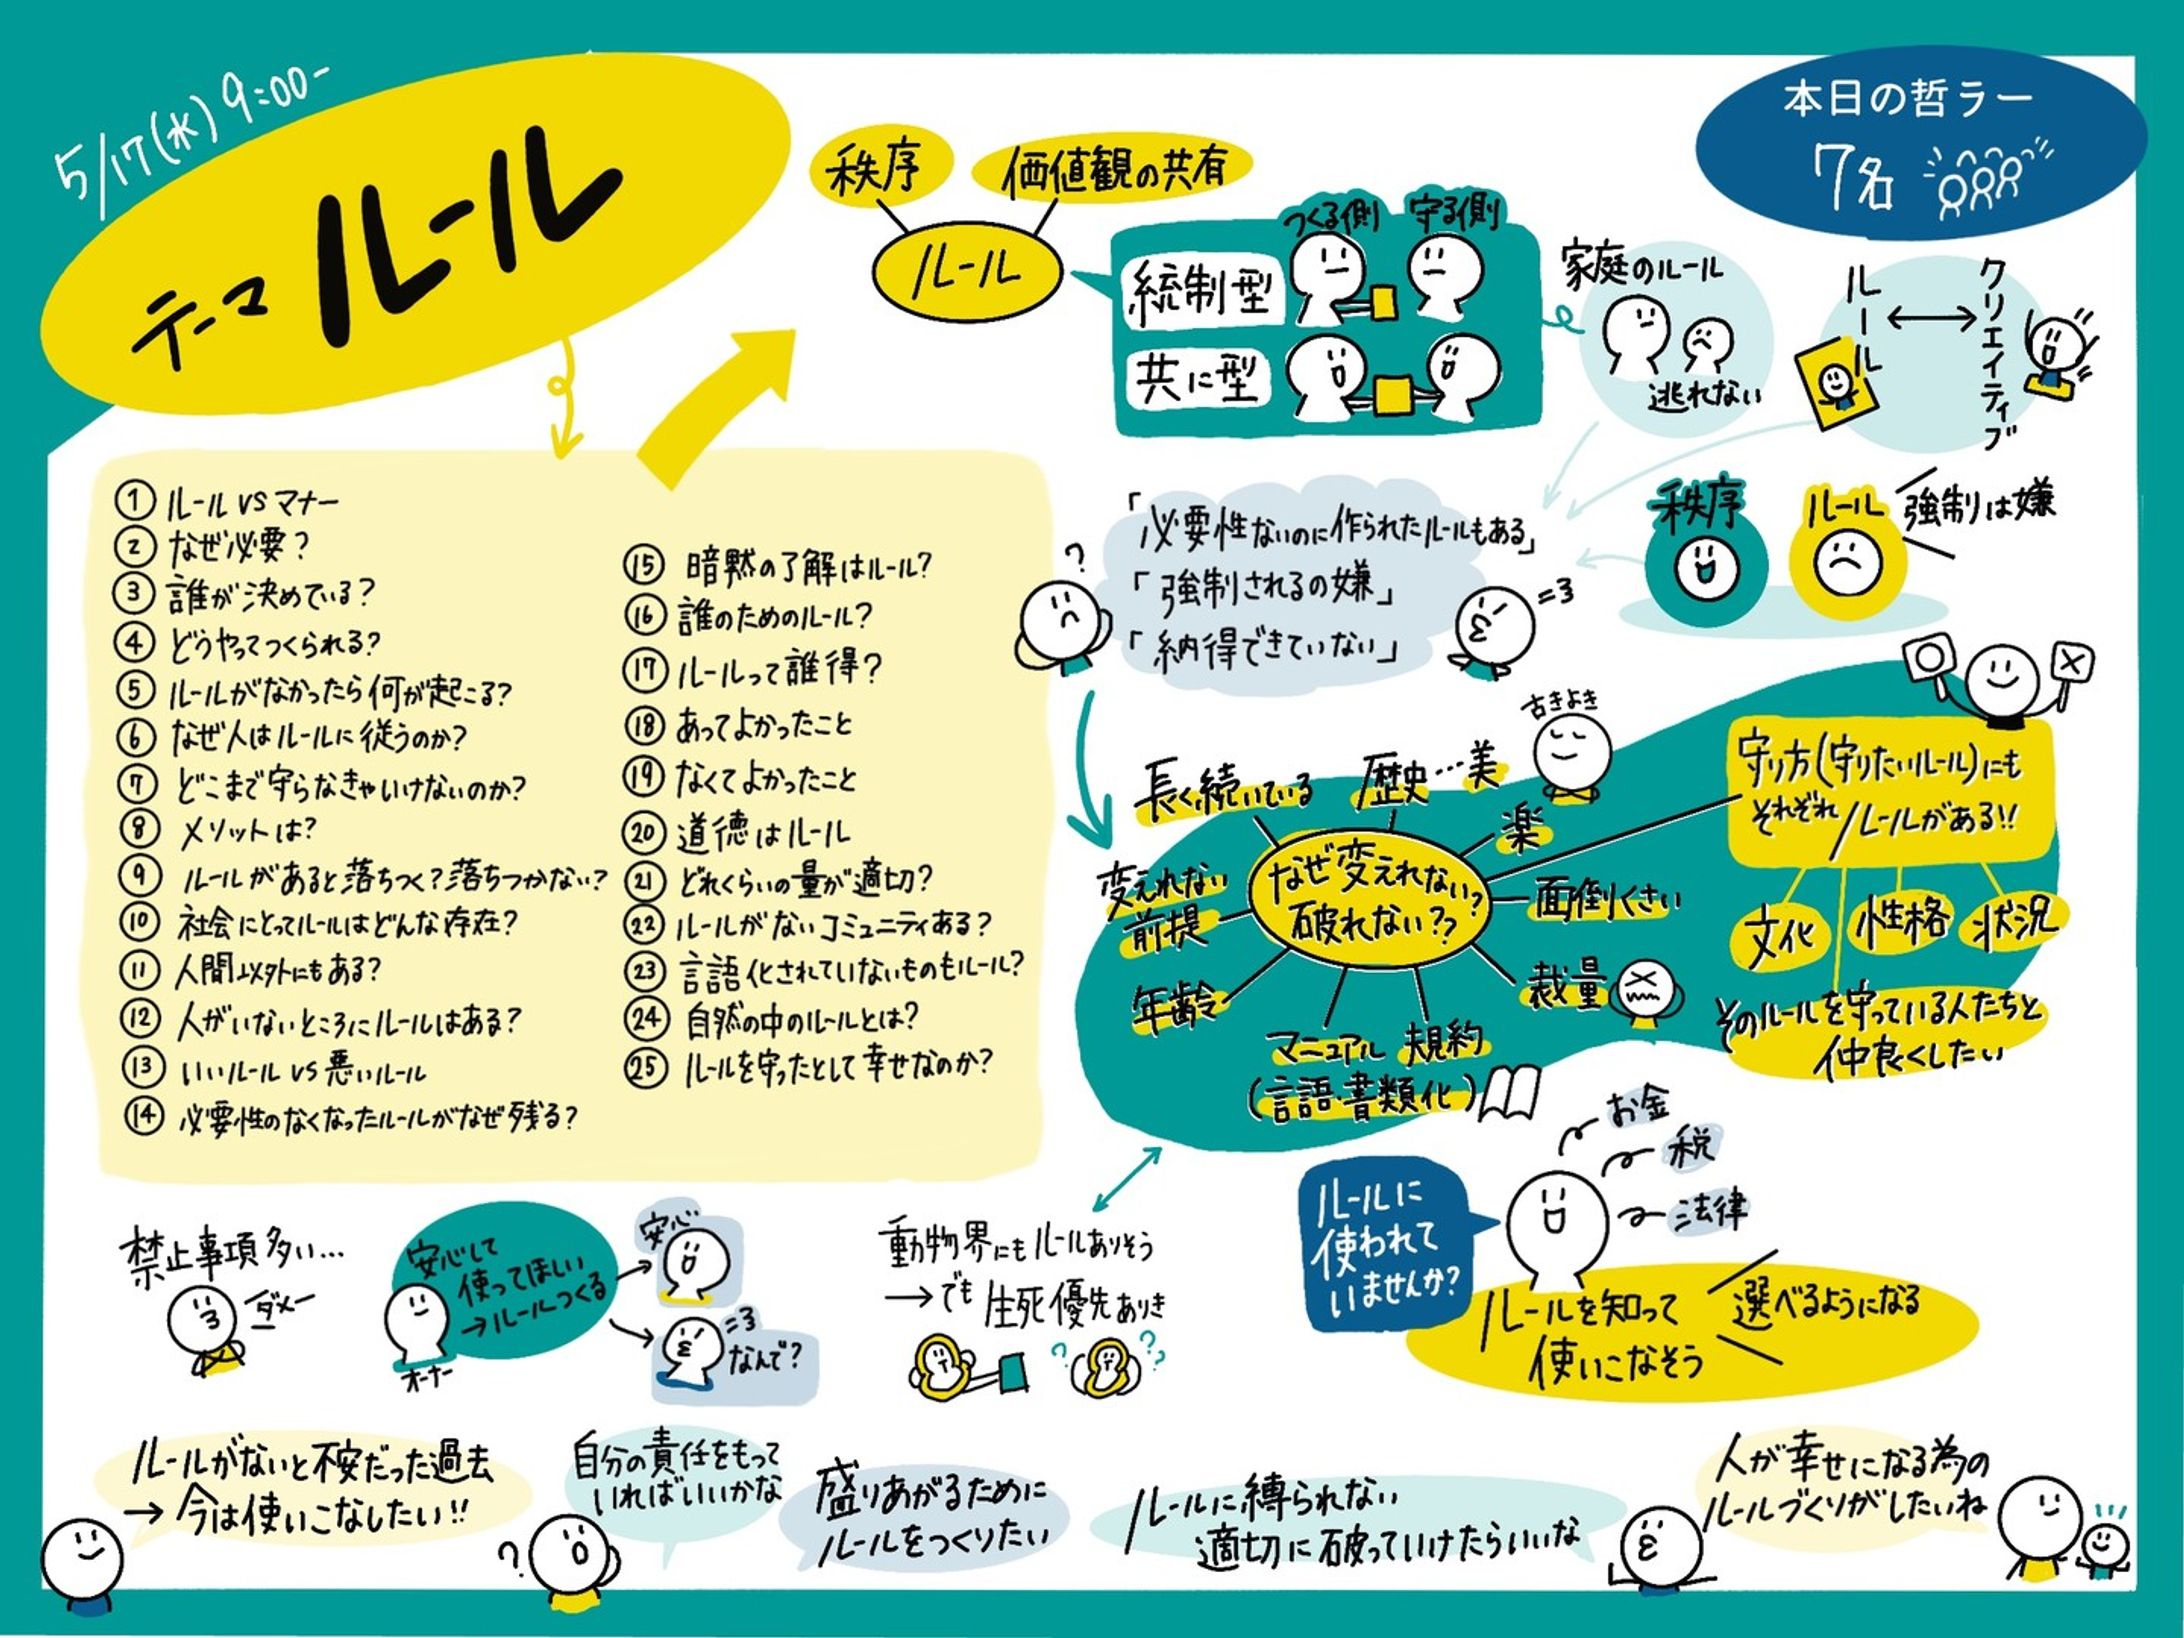 5/17(水) 9:00-
テーマ ルール
本日の哲ラー
7名
秩序
価値観の共有
ルール
つくる側
守る側
統制型
共に型
家庭のルール
逃れない
ルール
クリエイティブ
① ルール vs マナー
② なぜ必要?
③ 誰が決めている?
④ どうやってつくられる?
⑤ ルールがなかったら何が起こる?
⑥ なぜ人はルールに従うのか?
⑦ どこまで守らなきゃいけないのか?
⑧ メリットは?
⑨ ルールがあると落ちつく?落ちつかない?
⑩ 社会にとってルールはどんな存在?
⑪ 人間以外にもある?
⑫ 人がいないところにルールはある?
⑬ いいルール vs 悪いルール
⑭ 必要性のなくなったルールがなぜ残る?
⑮ 暗黙の了解はルール?
⑯ 誰のためのルール?
⑰ ルールって誰得?
⑱ あってよかったこと
⑲ なくてよかったこと
⑳ 道徳はルール
㉑ どれくらいの量が適切?
㉒ ルールがないコミュニティある?
㉓ 言語化されていないものもルール?
㉔ 自然の中のルールとは?
㉕ ルールを守ったとして幸せなのか?
「必要性ないのに作られたルールもある」
「強制されるの嫌」
「納得できていない」
?
=3
秩序
ルール
強制は嫌
なぜ変えれない?
破れない??
長く続いている
歴史…美
古きよき
楽
面倒くさい
裁量
規約
マニュアル
(言語・書類化)
年齢
変えれない
前提
守り方(守りたいルール)にも
それぞれルールがある!!
文化
性格
状況
そのルールを守っている人たちと
仲良くしたい
禁止事項多い…
ダメー
安心して
使ってほしい
→ルールつくる
オーナー
安心
=3
なんで?
動物界にもルールありそう
→でも生死優先ありき
???
ルールに
使われて
いませんか?
お金
税
法律
ルールを知って
使いこなそう
選べるようになる
ルールがないと不安だった過去
→今は使いこなしたい!!
自分の責任をもって
いればいいかな
?
盛りあがるために
ルールをつくりたい
ルールに縛られない
適切に破っていけたらいいな
人が幸せになる為の
ルールづくりがしたいね